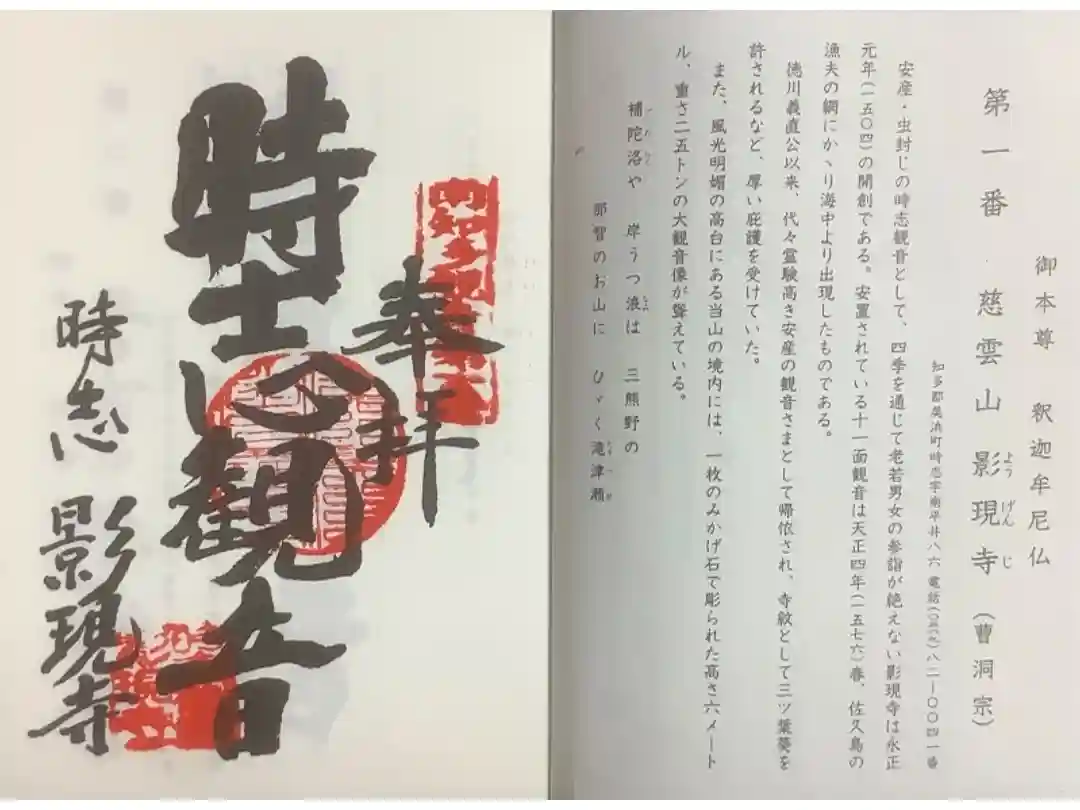 御本尊 釈迦牟尼仏
第一番 慈雲山 影現寺(曹洞宗)
ようげんじ
知多郡美浜町時志字南平井八六 電話(〇五六九)八二ー〇〇四一番
安産・虫封じの時志観音として、四季を通じて老若男女の参詣が絶えない影現寺は永正
元年(一五〇四)の開創である。安置されている十一面観音は天正四年(一五七六)春、佐久島の
漁夫の網にかゝり海中より出現したものである。
徳川義直公以来、代々霊験高き安産の観音さまとして帰依され、寺紋として三ツ葉葵を
許されるなど、厚い庇護を受けていた。
また、風光明媚の高台にある当山の境内には、一枚のみかげ石で彫られた高さ六メート
ル、重さ二五トンの大観音像が聳えている。
補陀洛や 岸うつ浪は 三熊野の
那智のお山に ひゞく滝津瀬
奉拝
時志観音
時志 影現寺